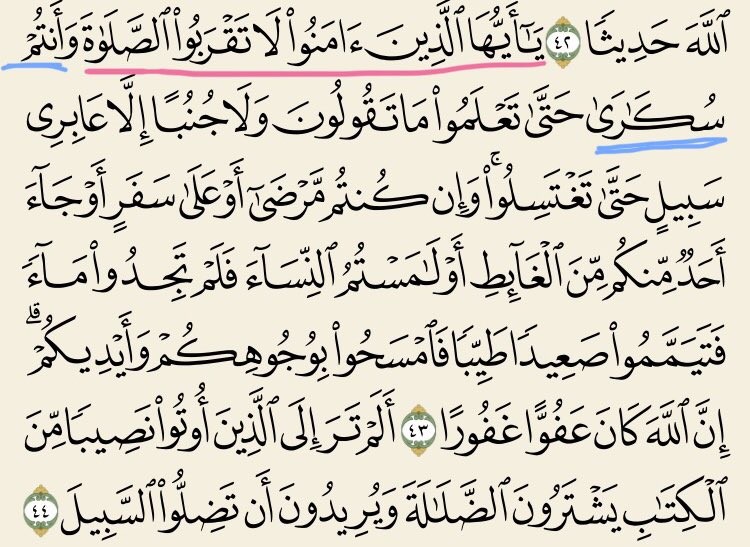 ٱللَّهَ حَدِيثٗا ٤٢ يَٰٓأَيُّهَا ٱلَّذِينَ ءَامَنُواْ لَا تَقۡرَبُواْ ٱلصَّلَوٰةَ وَأَنتُمۡ
سُكَٰرَىٰ حَتَّىٰ تَعۡلَمُواْ مَا تَقُولُونَ وَلَا جُنُبًا إِلَّا عَابِرِي
سَبِيلٍ حَتَّىٰ تَغۡتَسِلُواْۚ وَإِن كُنتُم مَّرۡضَىٰٓ أَوۡ عَلَىٰ سَفَرٍ أَوۡ جَآءَ
أَحَدٞ مِّنكُم مِّنَ ٱلۡغَآئِطِ أَوۡ لَٰمَسۡتُمُ ٱلنِّسَآءَ فَلَمۡ تَجِدُواْ مَآءٗ
فَتَيَمَّمُواْ صَعِيدٗا طَيِّبٗا فَٱمۡسَحُواْ بِوُجُوهِكُمۡ وَأَيۡدِيكُمۡۗ
إِنَّ ٱللَّهَ كَانَ عَفُوًّا غَفُورًا ٤٣ أَلَمۡ تَرَ إِلَى ٱلَّذِينَ أُوتُواْ نَصِيبٗا مِّنَ
ٱلۡكِتَٰبِ يَشۡتَرُونَ ٱلضَّلَٰلَةَ وَيُرِيدُونَ أَن تَضِلُّواْ ٱلسَّبِيلَ ٤٤